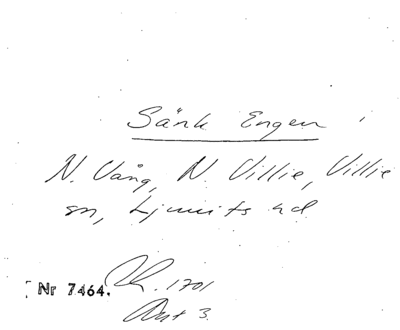 Sänk Engen
N. Vång, N. Villie, Villie
sn, Ljunits hd
Nr 7464. 1701
Akt 3.